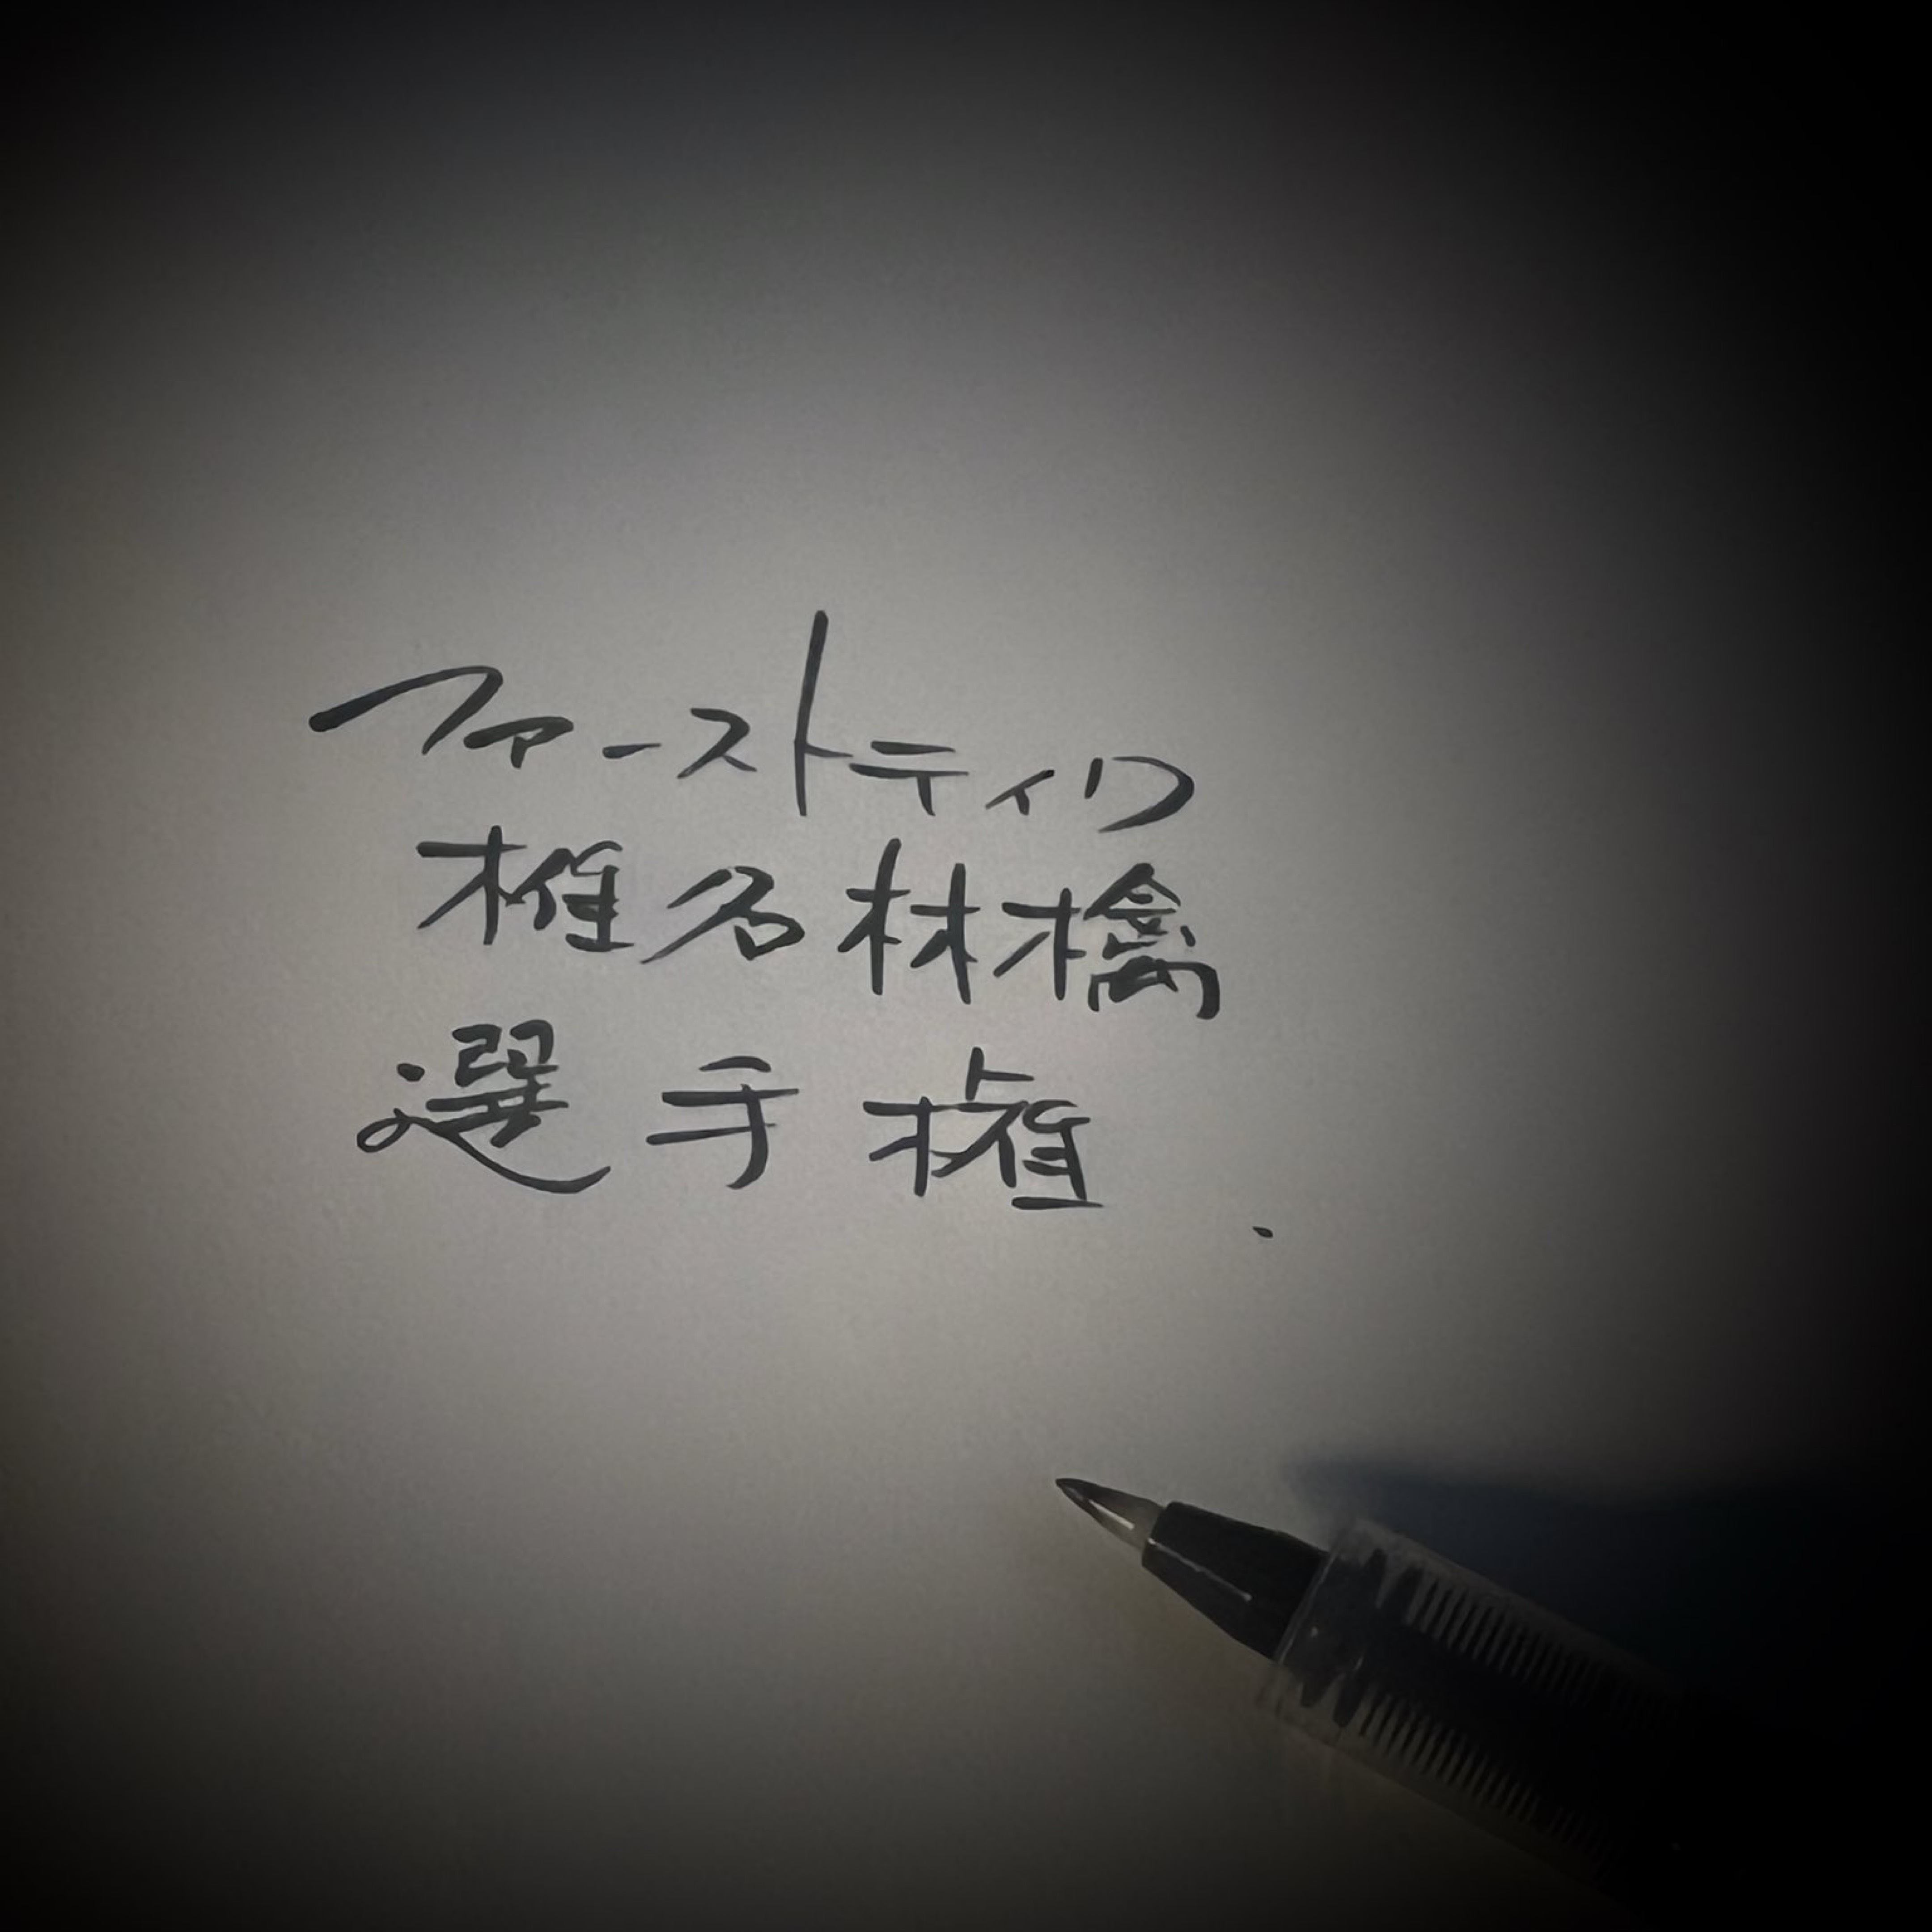 ファーストテイク
椎名林檎
選手権.